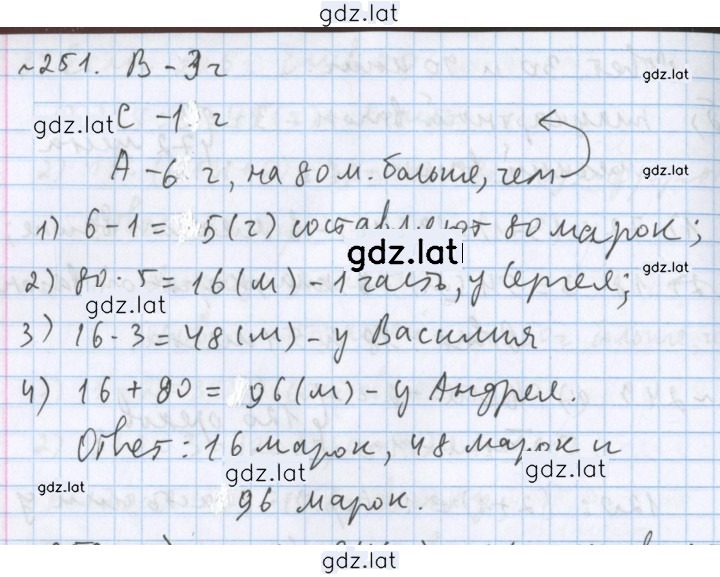 gdz.lat
№251. В - 3 г
gdz.lat
С - 1 г
gdz.lat
А - 6 г, на 80 м. больше, чем
gdz.lat
1) 6 - 1 = 5 (г) составляют 80 марок;
gdz.lat
2) 80 : 5 = 16 (м) - 1 часть, у Сергея;
gdz.lat
gdz.lat
3) 16 · 3 = 48 (м) - у Василия
4) 16 + 80 = 96 (м) - у Андрея.
gdz.lat
Ответ: 16 марок, 48 марок и
gdz.lat
gdz.lat
gdz.lat
96 марок.
gdz.lat